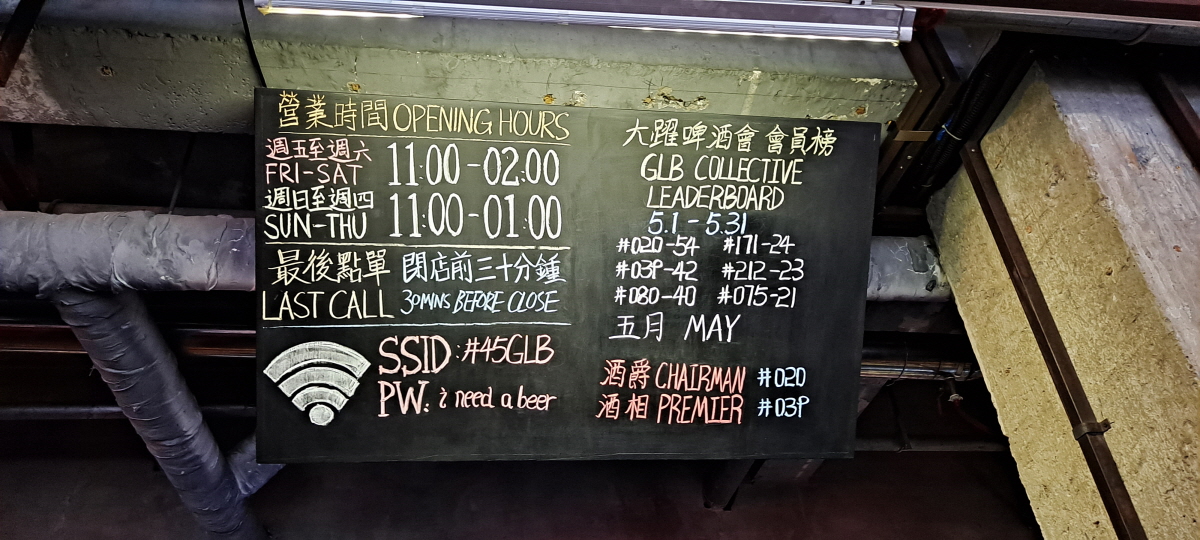 營業時間 OPENING HOURS
週五至週六
FRI-SAT 11:00-02:00
週日至週四
SUN-THU 11:00-01:00
最後點單 閉店前三十分鍾
LAST CALL 30MINS BEFORE CLOSE
SSID: #45GLB
PW: i need a beer
大躍啤酒會 會員榜
GLB COLLECTIVE
LEADERBOARD
5.1-5.31
#020-54 #171-24
#039-42 #212-23
#080-40 #075-21
五月 MAY
酒爵 CHAIRMAN #020
酒相 PREMIER #039